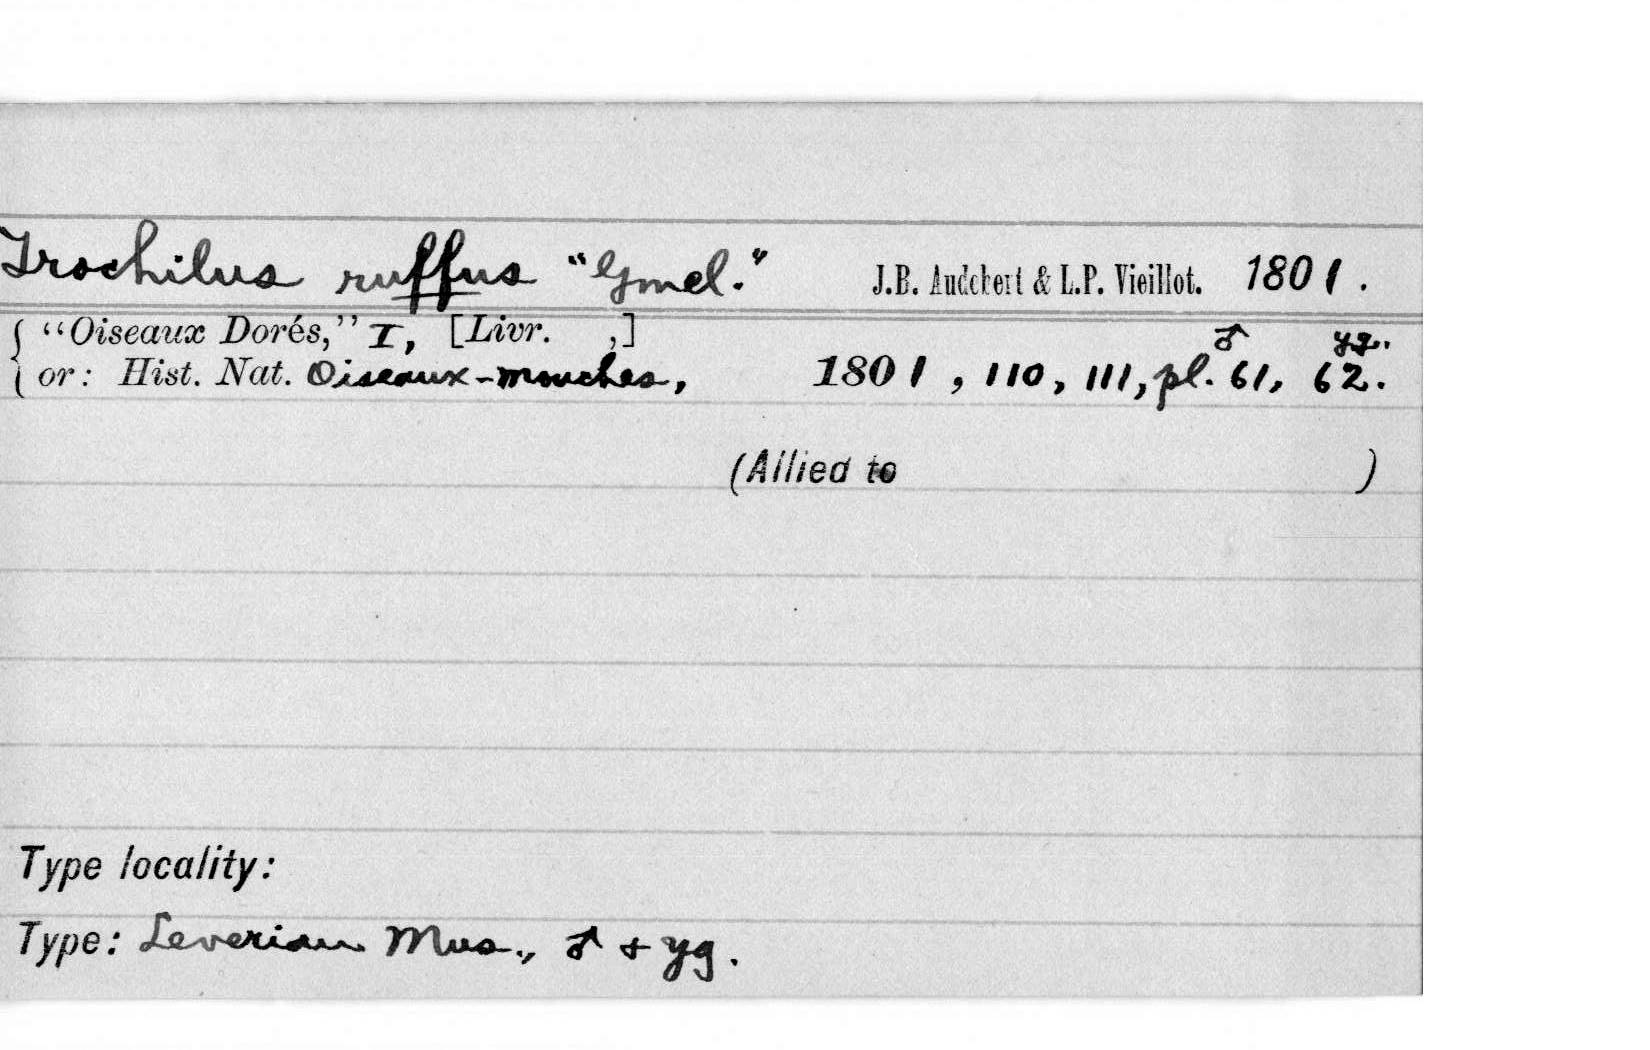 Trochilus ruffus "Gmel." J.B. Audebert & L.P. Vieillot. 1801.
"Oiseaux Dorés," I, [Livr. ,]
♂ yg.
or: Hist. Nat. Oiseaux-mouches, 1801, 110, 111, pl. 61, 62.
(Allied to )
Type locality:
Type: Leverian Mus., ♂ + yg.